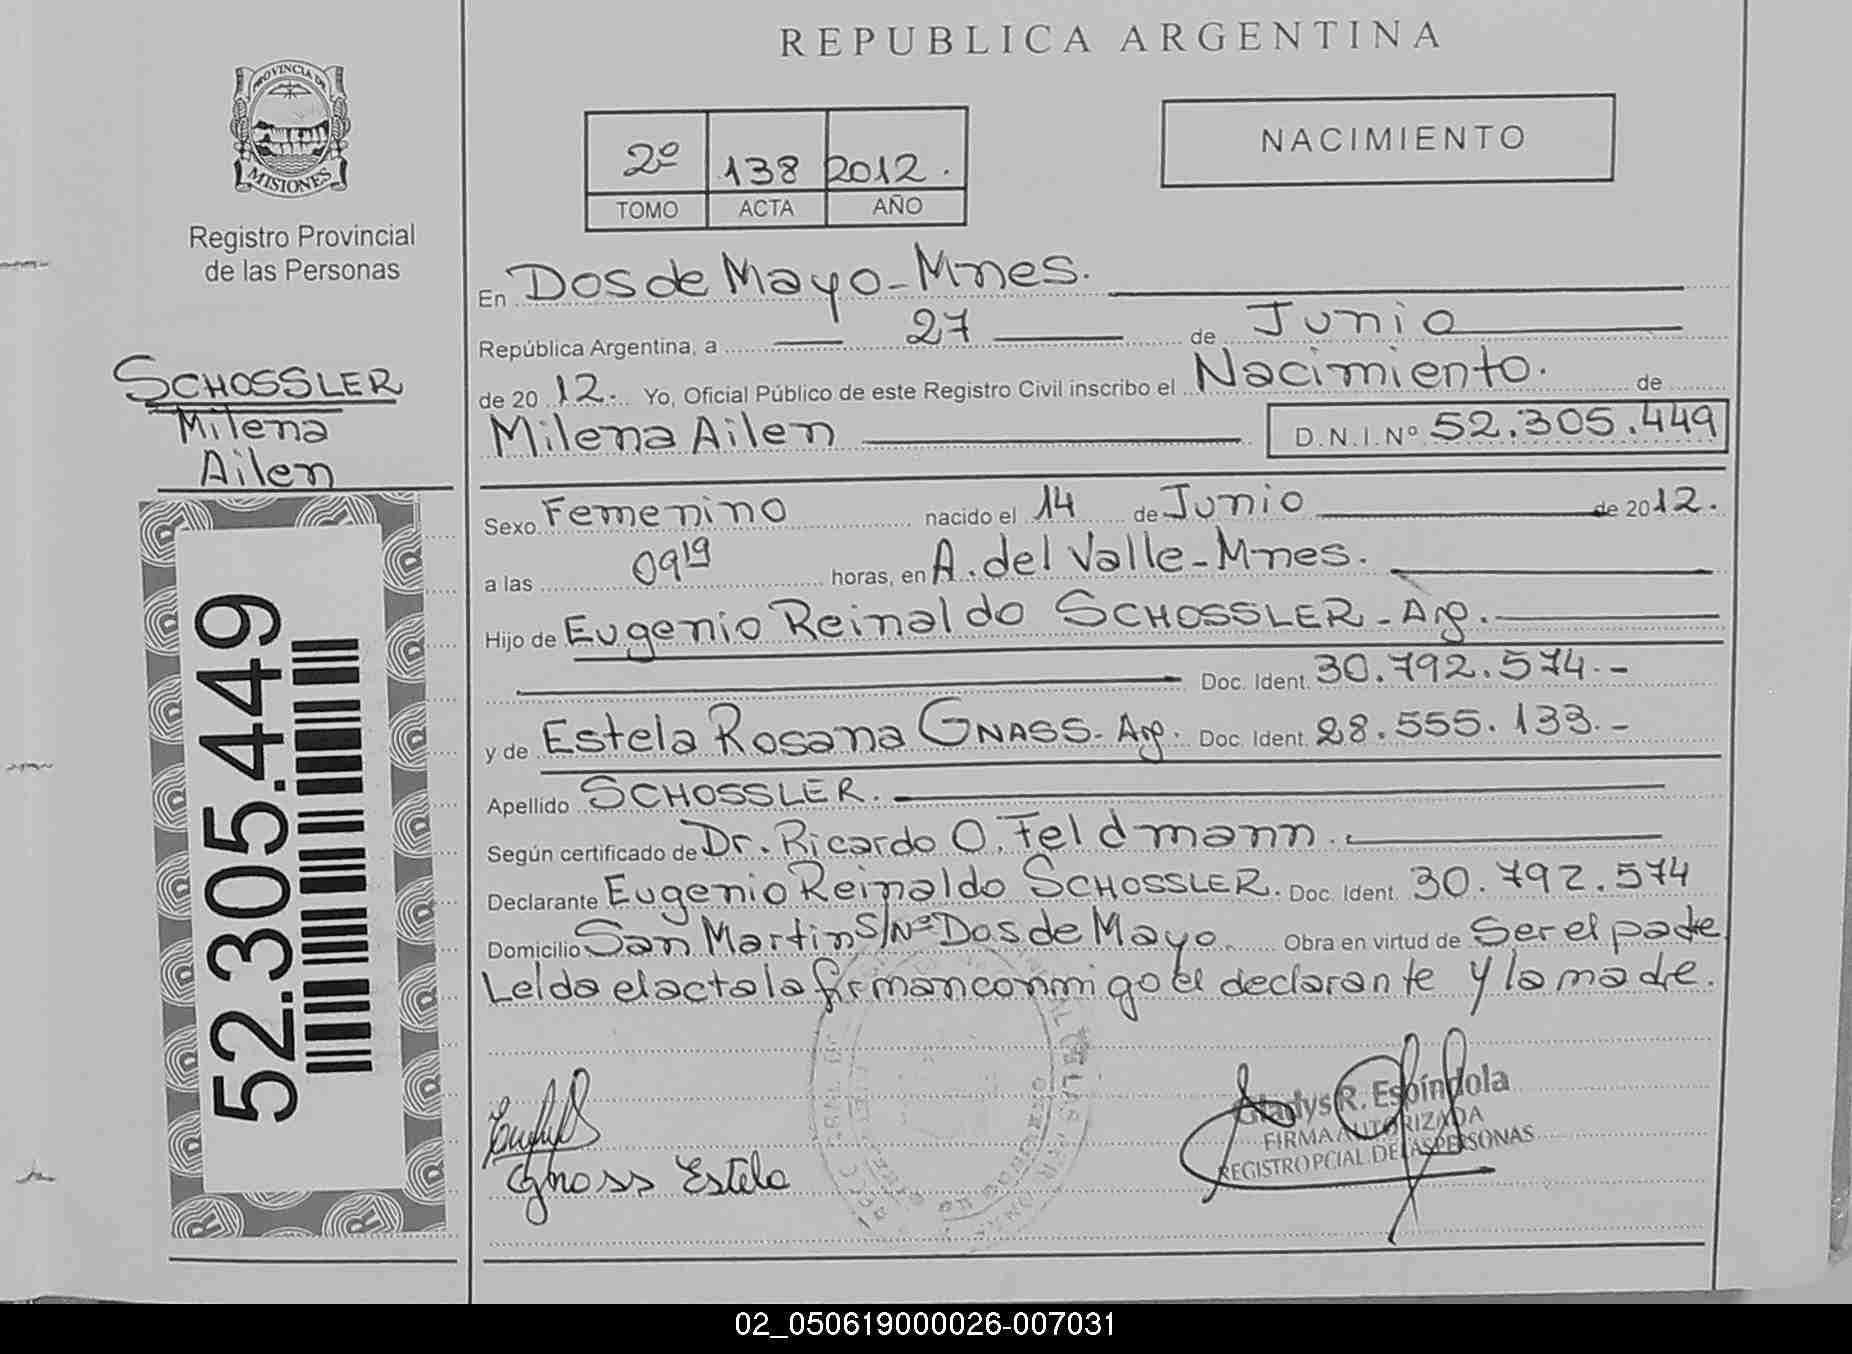 REPUBLICA ARGENTINA
PROVINCIA DE
MISIONES
Registro Provincial
de las Personas
2º 138 2012.
TOMO ACTA AÑO
NACIMIENTO
SCHOSSLER
Milena
Ailen
52.305.449
En Dos de Mayo - Mnes.
República Argentina, a 27 de Junio
de 20 12. Yo, Oficial Público de este Registro Civil inscribo el Nacimiento. de
Milena Ailen D.N.I.Nº 52.305.449
Sexo Femenino nacido el 14 de Junio de 2012.
a las 09 19 horas, en A. del Valle - Mnes.
Hijo de Eugenio Reinaldo SCHOSSLER - Arg.
Doc. Ident. 30.792.574.-
y de Estela Rosana GNASS - Arg. Doc. Ident. 28.555.133.-
Apellido SCHOSSLER.
Según certificado de Dr. Ricardo O. Feldmann.
Declarante Eugenio Reinaldo SCHOSSLER. Doc. Ident. 30.792.574
Domicilio San Martin S/Nº Dos de Mayo Obra en virtud de Ser el padre
Leida el acta la firman conmigo el declarante y la madre.
Gnass Estela
Gladys R. Espíndola
FIRMA AUTORIZADA
REGISTRO PCIAL. DE LAS PERSONAS
02_050619000026-007031